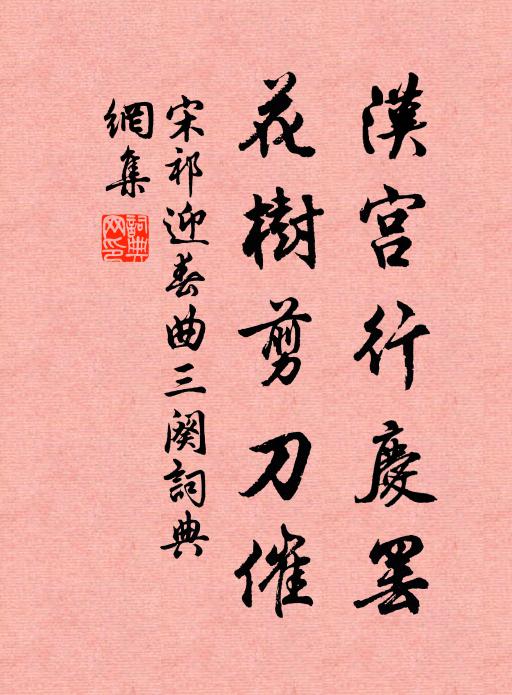 漢宮行慶罷
花樹剪刀催
宋祁迎春曲三闋詞典
網集
詞典
网印